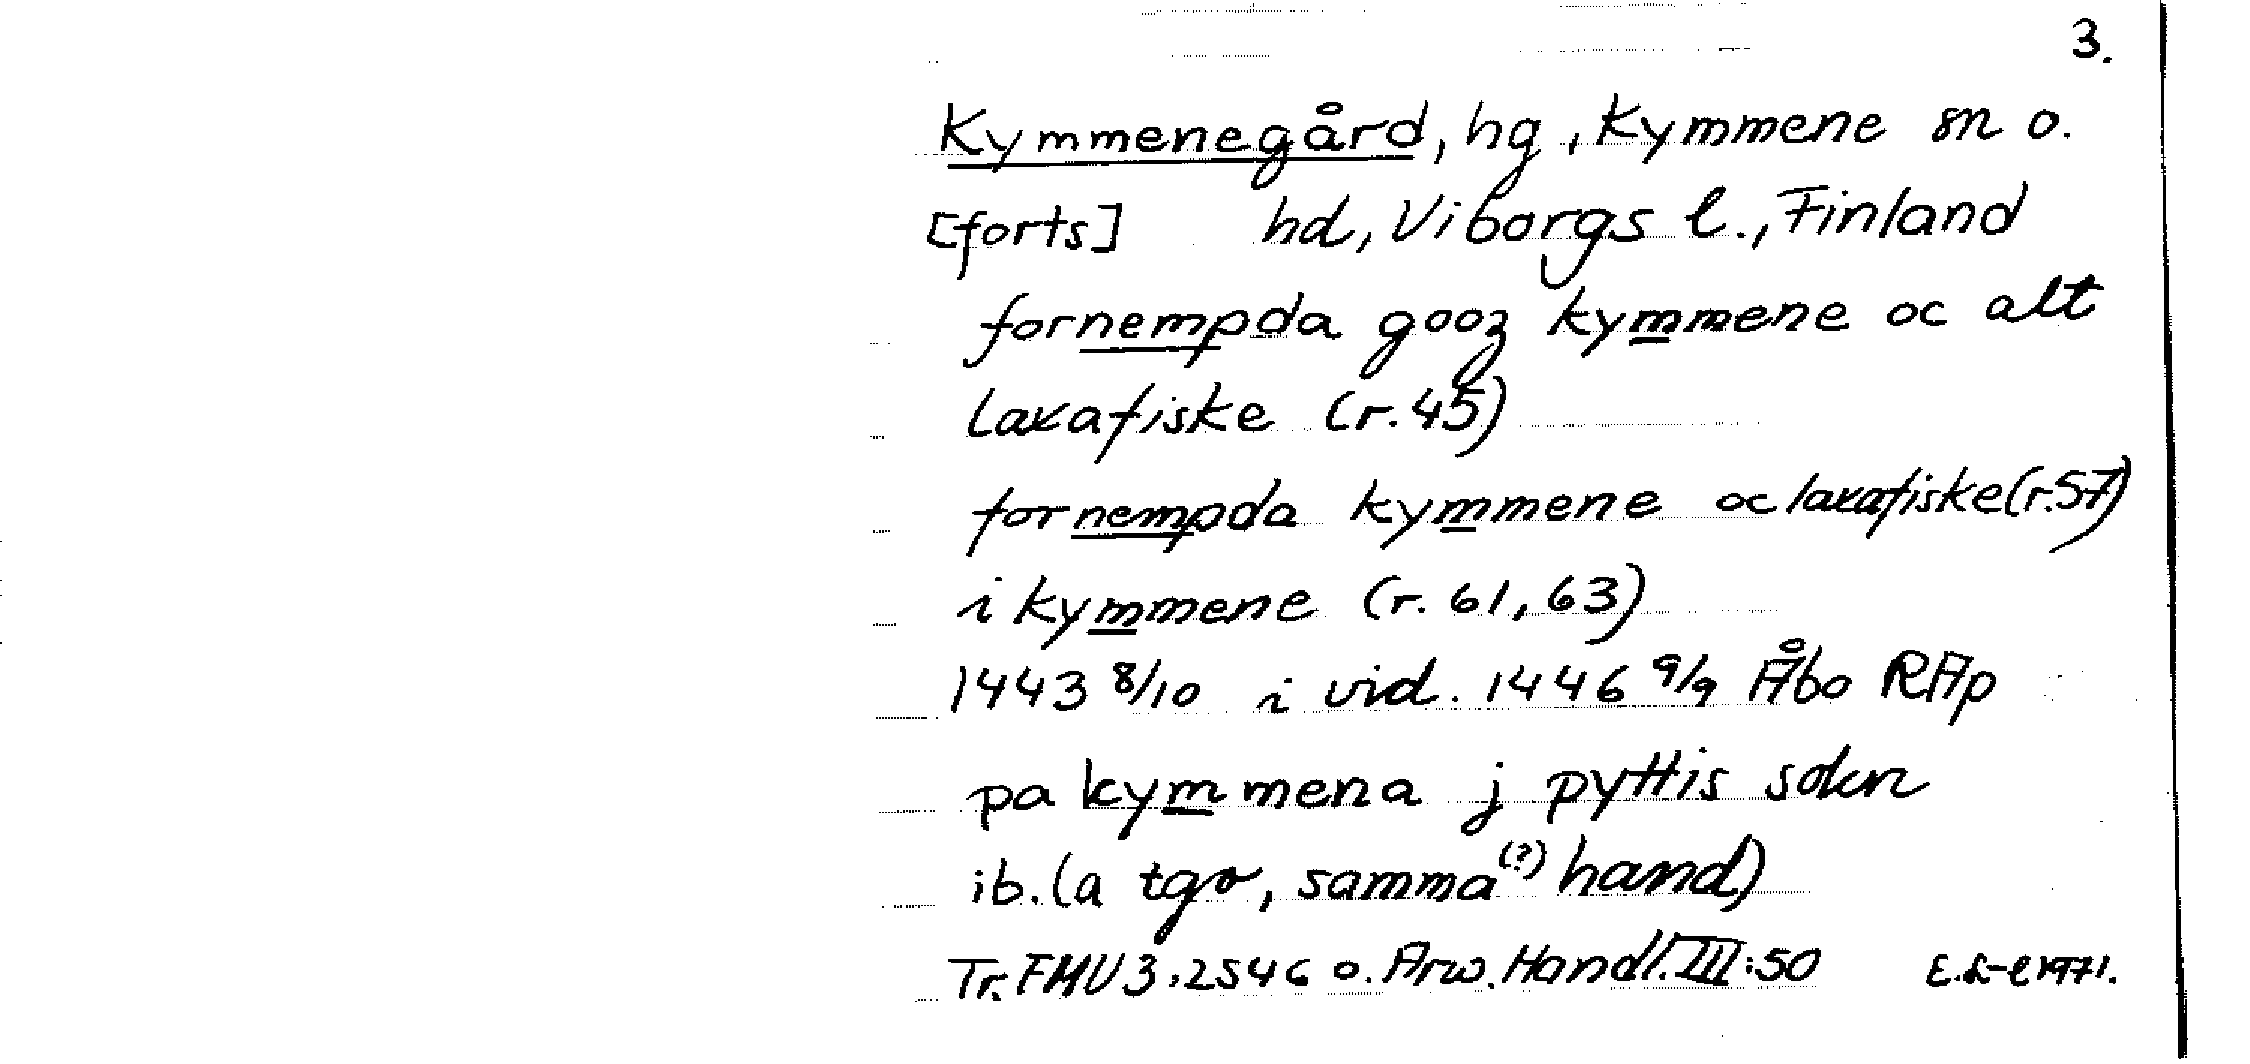 3.
Kymmenegård, hg, Kymmene sn o.
[forts] hd, Viborgs l., Finland
fornempda gooz kymmene oc alt
laxafiske (r.45)
fornempda kymmene oc laxafiske (r.57)
i kymmene (r. 61, 63)
1443 8/10 i vid. 1446 9/9 Åbo RAp
pa kymmena j pyttis sokn
ib. (a tgo, samma (?) hand)
Tr. FMU 3, 2546 o. Arw. Handl. III:50 E.L-l 1971.